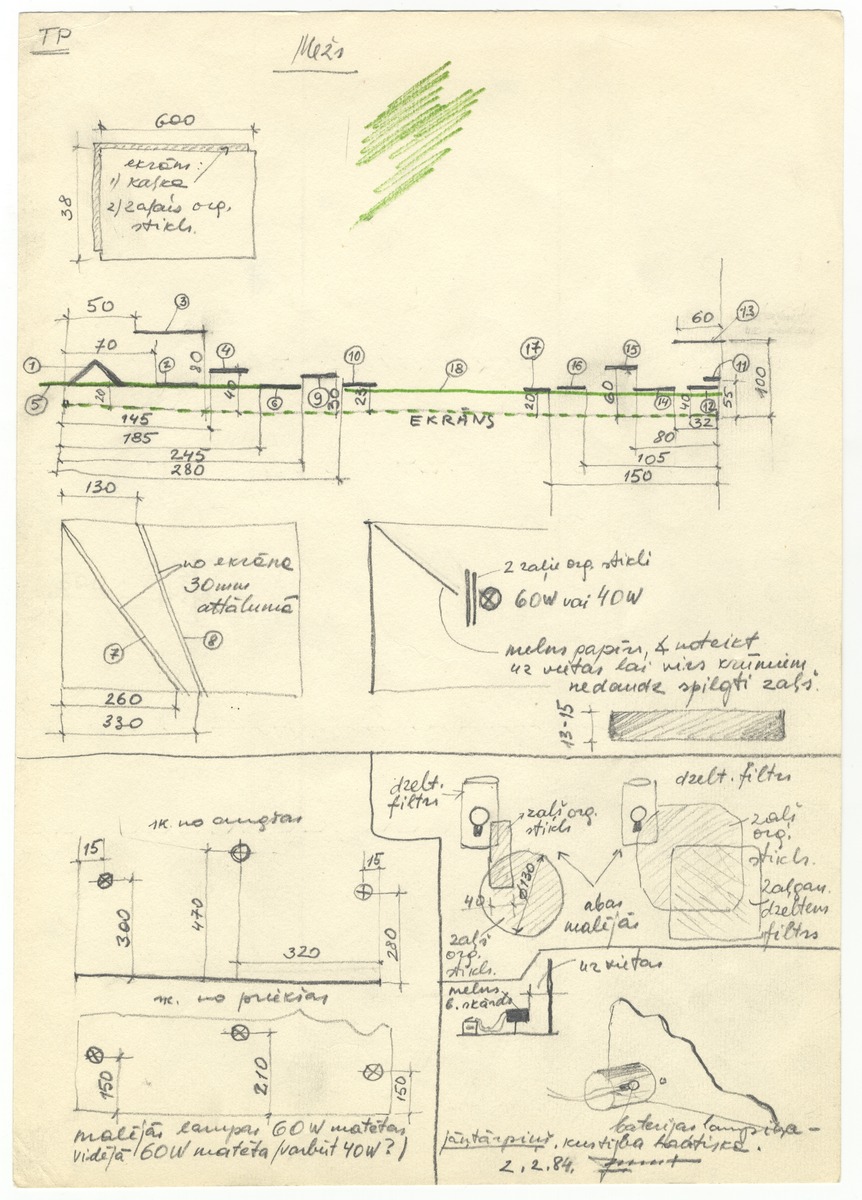 TP
Mežs
600
38
ekrāns:
1) kaļķa
2) zaļais org.
stikls.
50
3
60
13
70
1
2
80
4
10
18
17
16
15
11
100
5
20
40
6
9
30
25
20
60
14
40
12
55
EKRĀNS
32
145
185
245
280
80
105
150
130
no ekrāna
30mm
attālumā
7
8
260
330
2 zaļie org. stikli
60W vai 40W
melns papīrs, ∡ noteikt
uz vietas lai virs krūmiem
nedaudz spilgti zaļš.
13-15
sk. no augšas
15
15
300
470
320
280
sk. no priekšas
150
210
150
malējās lampas 60W matētas
vidējā 60W matēta (varbūt 40W?)
dzelt.
filtrs
zaļš org.
stikls
ø130
40
zaļš
org.
stikls.
abas
malējās
dzelt. filtrs
zaļš
org.
stikls.
zaļgan.
dzeltens
filtrs
uz vietas
melns
b. skārds
baterijas lampiņa -
jāņtārpiņi, kustība haotiska.
2.2.84.